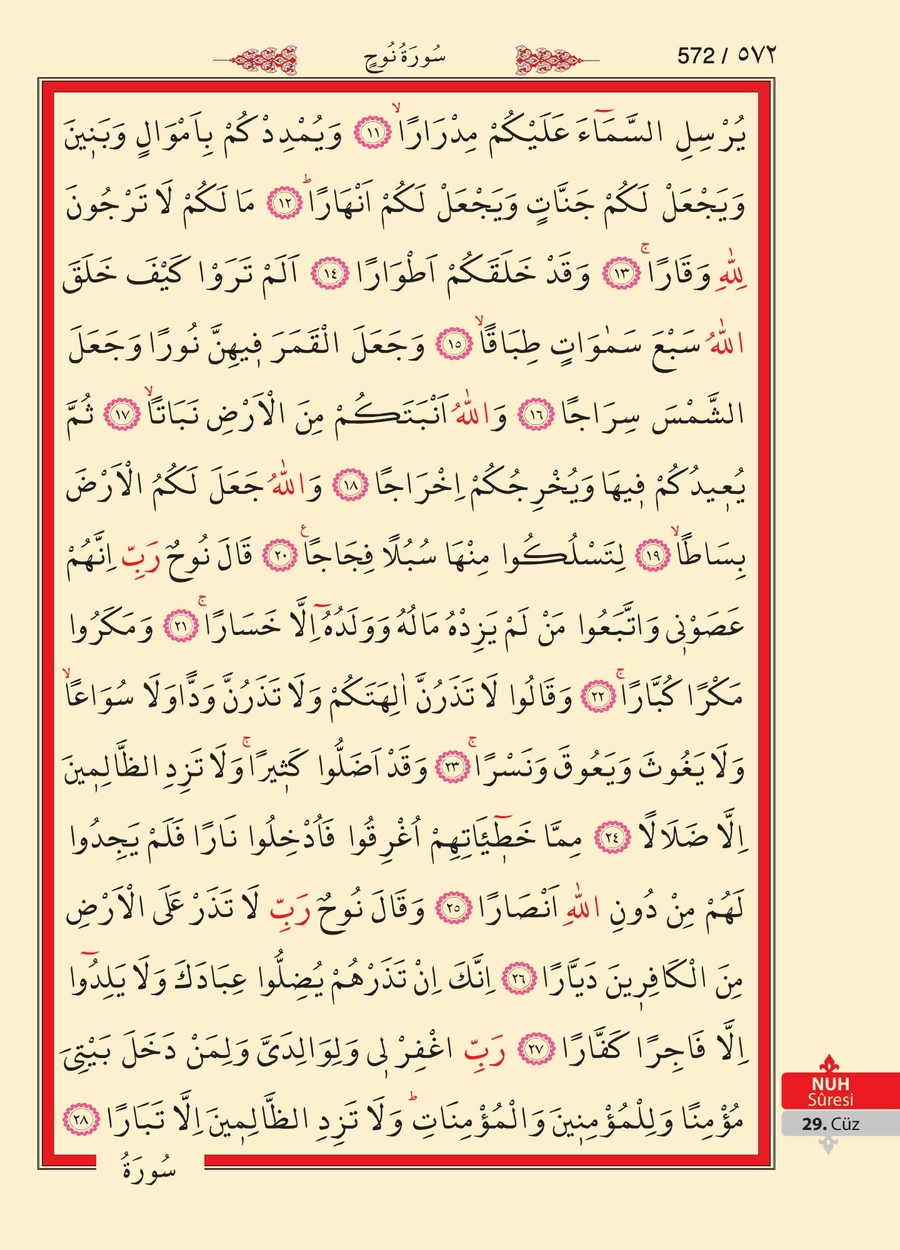 سُورَةُ نُوحٍ
572 / ٥٧٢
يُرْسِلِ السَّمَٓاءَ عَلَيْكُمْ مِدْرَارًاۙ ﴿١١﴾ وَيُمْدِدْكُمْ بِاَمْوَالٍ وَبَنٖينَ
وَيَجْعَلْ لَكُمْ جَنَّاتٍ وَيَجْعَلْ لَكُمْ اَنْهَارًاؕ ﴿١٢﴾ مَا لَكُمْ لَا تَرْجُونَ
لِلّٰهِ وَقَارًاۚ ﴿١٣﴾ وَقَدْ خَلَقَكُمْ اَطْوَارًا ﴿١٤﴾ اَلَمْ تَرَوْا كَيْفَ خَلَقَ
اللّٰهُ سَبْعَ سَمٰوَاتٍ طِبَاقًاۙ ﴿١٥﴾ وَجَعَلَ الْقَمَرَ فٖيهِنَّ نُورًا وَجَعَلَ
الشَّمْسَ سِرَاجًا ﴿١٦﴾ وَاللّٰهُ اَنْبَتَكُمْ مِنَ الْاَرْضِ نَبَاتًاۙ ﴿١٧﴾ ثُمَّ
يُعٖيدُكُمْ فٖيهَا وَيُخْرِجُكُمْ اِخْرَاجًا ﴿١٨﴾ وَاللّٰهُ جَعَلَ لَكُمُ الْاَرْضَ
بِسَاطًاۙ ﴿١٩﴾ لِتَسْلُكُوا مِنْهَا سُبُلًا فِجَاجًاࣖ ﴿٢٠﴾ قَالَ نُوحٌ رَبِّ اِنَّهُمْ
عَصَوْنٖى وَاتَّبَعُوا مَنْ لَمْ يَزِدْهُ مَالُهُ وَوَلَدُهُٓ اِلَّا خَسَارًاۚ ﴿٢١﴾ وَمَكَرُوا
مَكْرًا كُبَّارًاۚ ﴿٢٢﴾ وَقَالُوا لَا تَذَرُنَّ اٰلِهَتَكُمْ وَلَا تَذَرُنَّ وَدًّا وَلَا سُوَاعًاۙ
وَلَا يَغُوثَ وَيَعُوقَ وَنَسْرًاۚ ﴿٢٣﴾ وَقَدْ اَضَلُّوا كَثٖيرًاۚ وَلَا تَزِدِ الظَّالِمٖينَ
اِلَّا ضَلَالًا ﴿٢٤﴾ مِمَّا خَطٖٓيـَٔاتِهِمْ اُغْرِقُوا فَاُدْخِلُوا نَارًا فَلَمْ يَجِدُوا
لَهُمْ مِنْ دُونِ اللّٰهِ اَنْصَارًا ﴿٢٥﴾ وَقَالَ نُوحٌ رَبِّ لَا تَذَرْ عَلَى الْاَرْضِ
مِنَ الْكَافِرٖينَ دَيَّارًا ﴿٢٦﴾ اِنَّكَ اِنْ تَذَرْهُمْ يُضِلُّوا عِبَادَكَ وَلَا يَلِدُٓوا
اِلَّا فَاجِرًا كَفَّارًا ﴿٢٧﴾ رَبِّ اغْفِرْ لٖى وَلِوَالِدَىَّ وَلِمَنْ دَخَلَ بَيْتِىَ
مُؤْمِنًا وَلِلْمُؤْمِنٖينَ وَالْمُؤْمِنَاتِؕ وَلَا تَزِدِ الظَّالِمٖينَ اِلَّا تَبَارًا ﴿٢٨﴾
سُورَةُ
NUH
Sûresi
29. Cüz